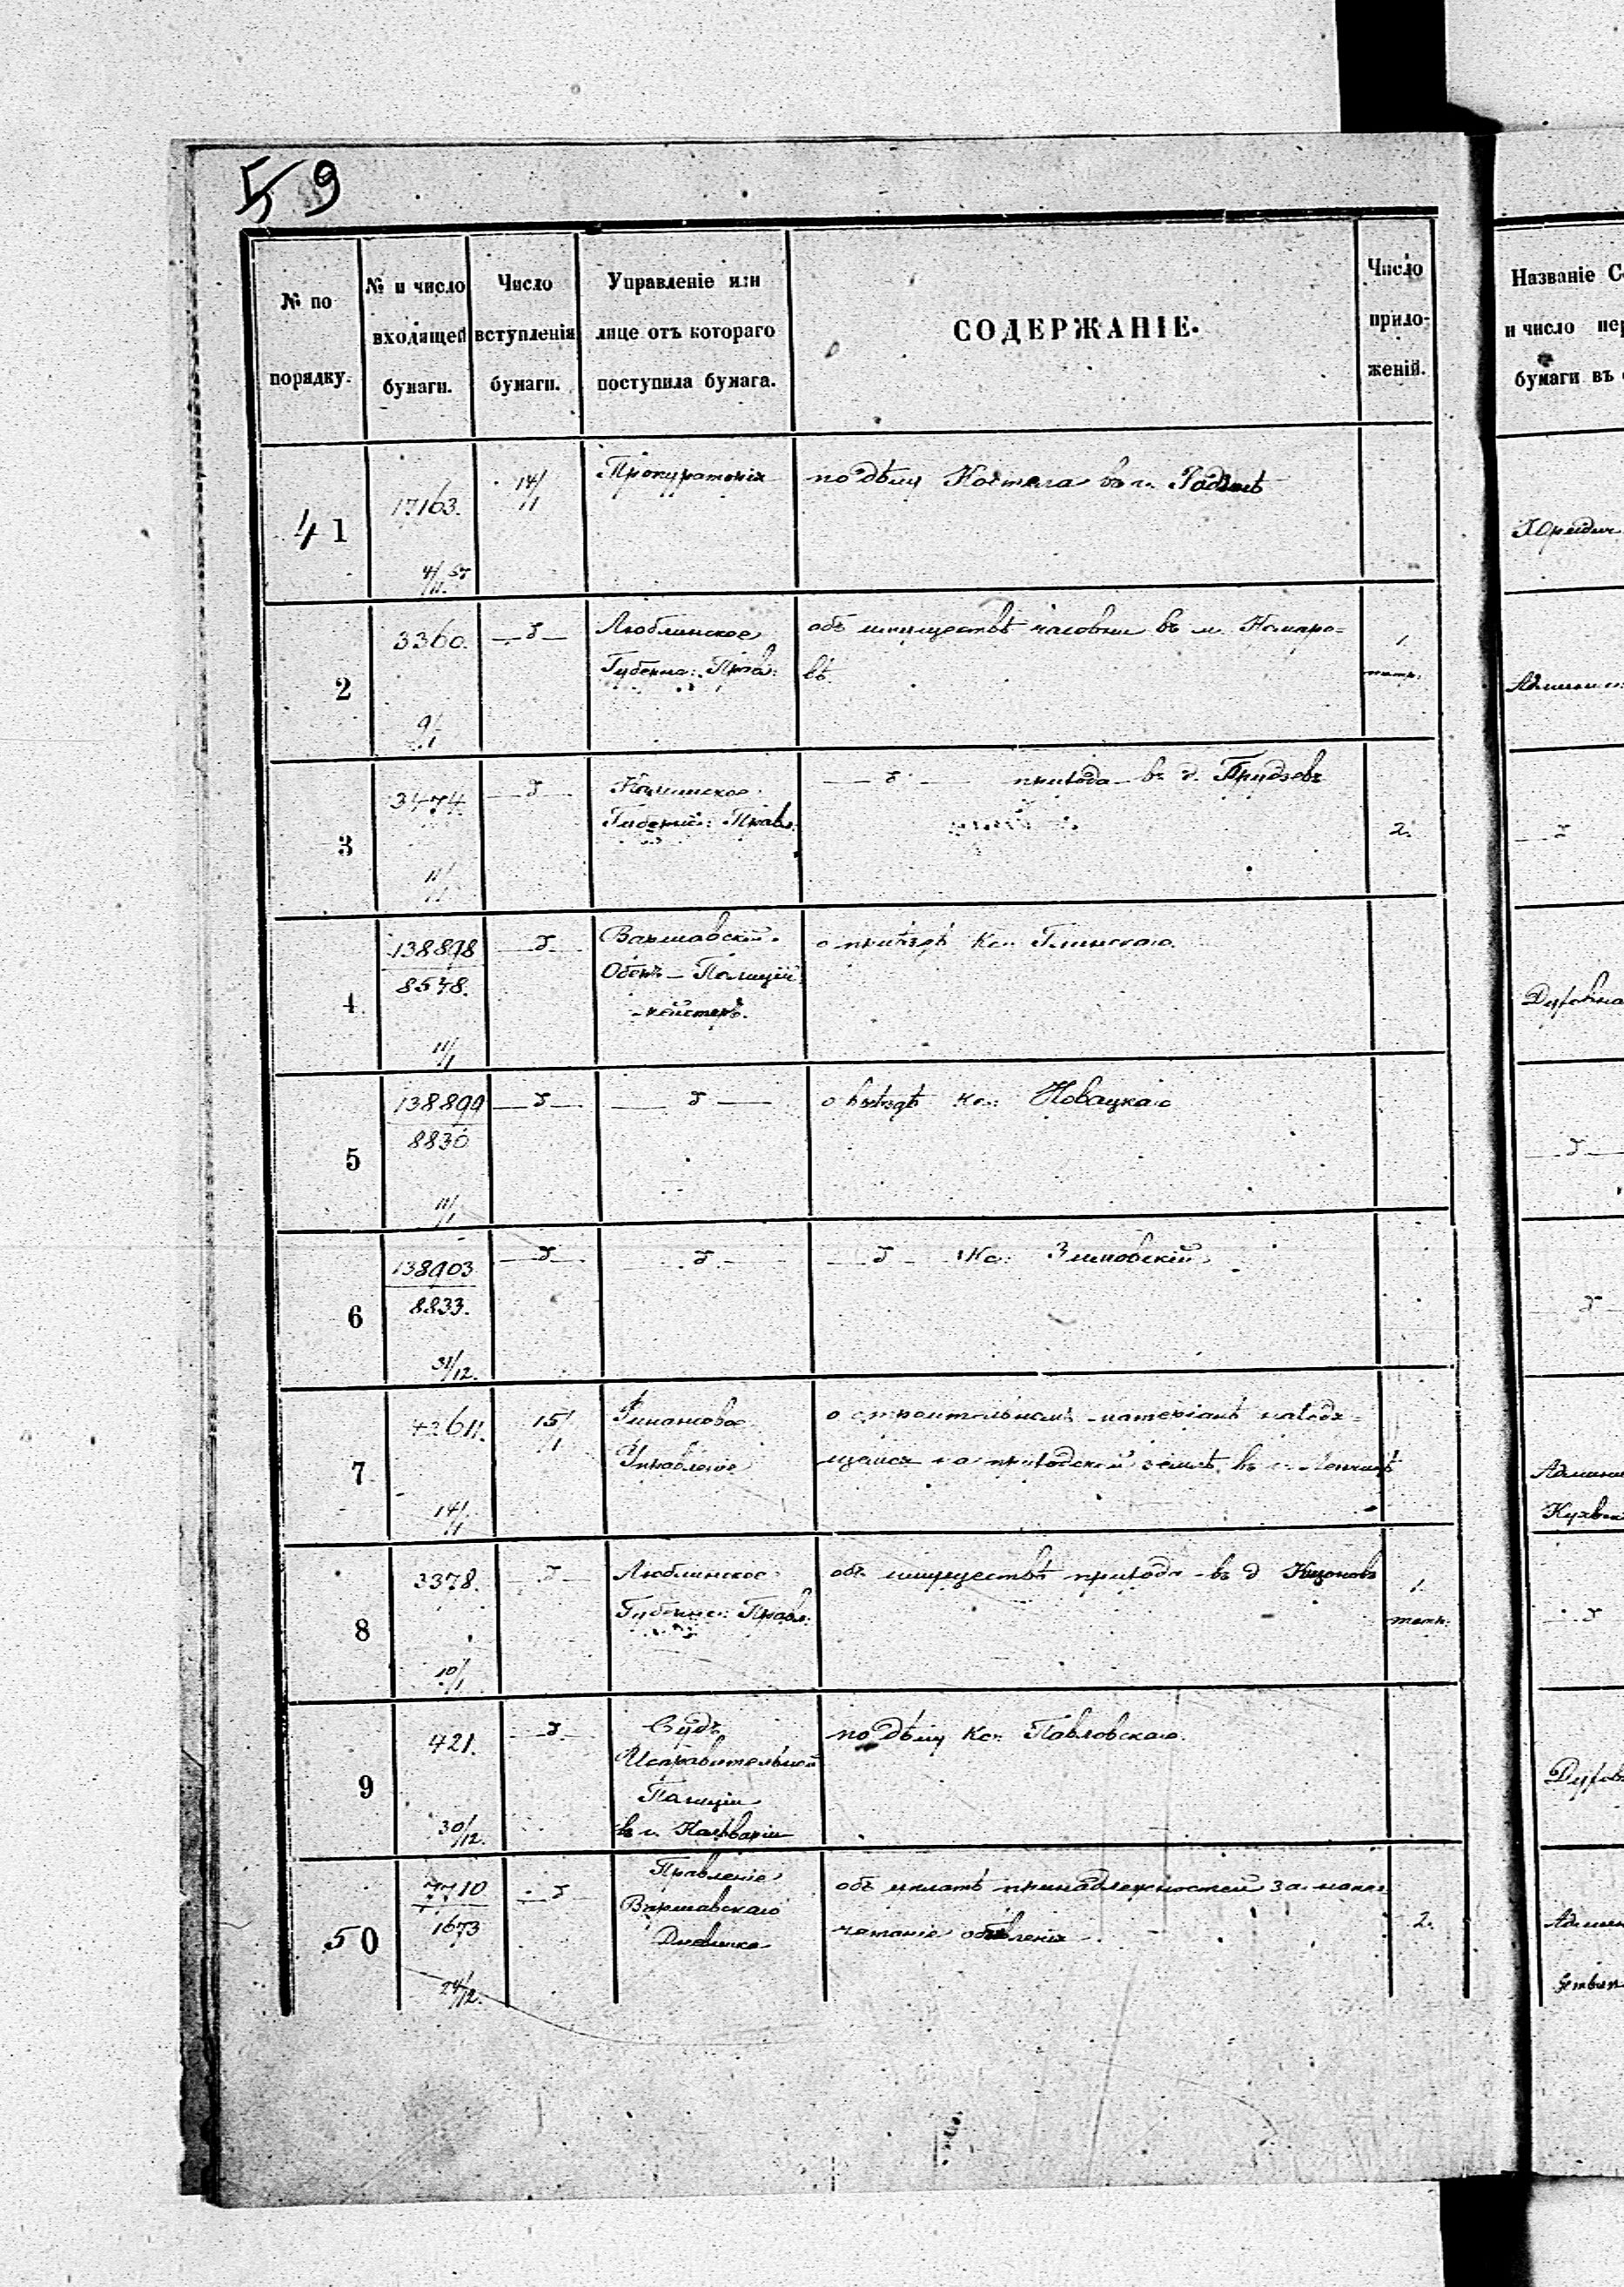 59
№ по порядку.
№ и число входящей бумаги.
Число вступленія бумаги.
Управленіе или лице отъ котораго поступила бумага.
СОДЕРЖАНІЕ.
Число приложеній.
41
17163.
4/11 57
14/11
Прокураторія
по дѣлу Костела въ г.
2
3360.
9/1
— д —
Люблинское
Губернс: Правл:
объ имуществѣ часовни въ м. Комаро=
вѣ.
1.
3
3474.
11/1
— д —
Губернс: Правл:
— д — прихода въ д.
2.
4
138898
8578.
11/1
— д —
Варшавскій
Оберъ-Полицій
-мейстеръ.
о пріѣздѣ Кс:
5
138899
8830
11/1
— д —
— д —
о въѣздѣ Кс: Новацкаго
6
138903
8833.
31/12.
— д —
— д —
— д — Кс:
7
42611.
14/1
15/1
Финансовое
Управленіе
о строительномъ матеріалѣ находя=
щемся на приходской землѣ въ г.
8
3378.
10/1
— д —
Люблинское
Губернс: Правл:
объ имуществѣ прихода въ д
1.
9
421.
30/12.
— д —
Судъ
Исправительной
Полиціи
въ г. Кальваріи
по дѣлу Кс: Павловскаго.
50
7710
1673
24/12.
— д —
Правленіе
Варшавскаго
Дневника
объ уплатѣ принадлежностей за напе=
чатаніе объявленія
2.
Названіе С
и число пер
бумаги въ
Юридич
Админист
— д
Духовна
— д —
— д
Админи
— д
Духов
Админ